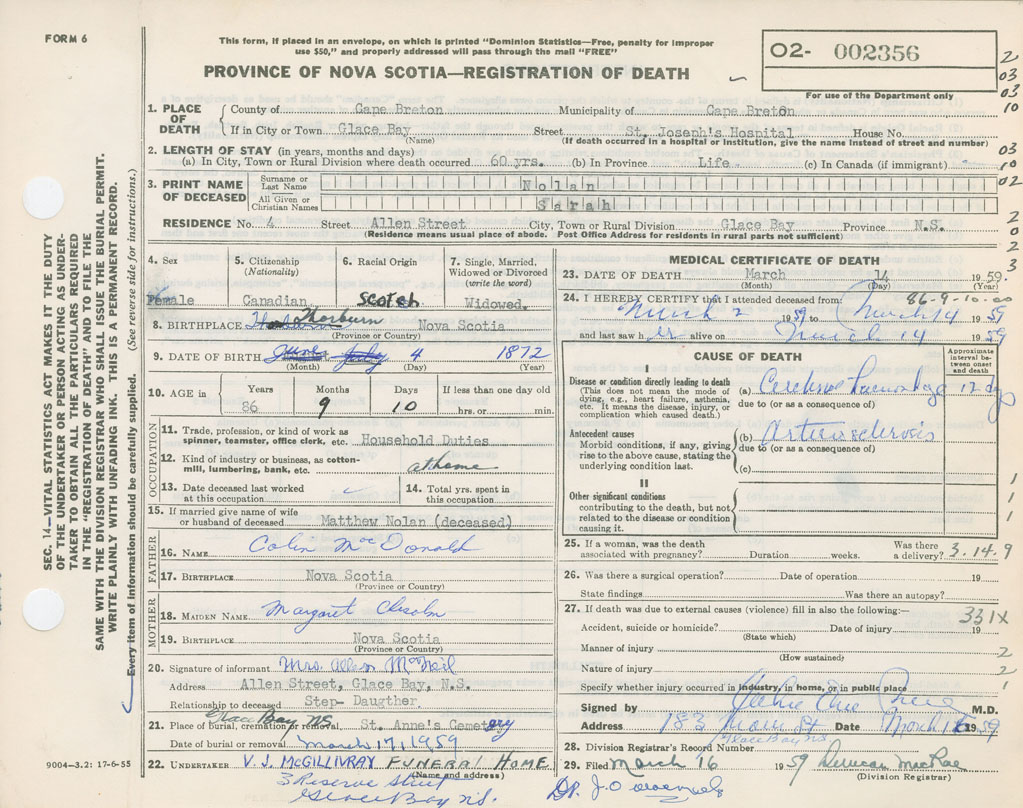 FORM 6
This form, if placed in an envelope, on which is printed "Dominion Statistics—Free, penalty for improper
use $50," and properly addressed will pass through the mail "FREE"
PROVINCE OF NOVA SCOTIA—REGISTRATION OF DEATH
02- 002356
For use of the Department only
2
03
03
10
03
10
02
2
0
2
3
SEC. 14—VITAL STATISTICS ACT MAKES IT THE DUTY
OF THE UNDERTAKER OR PERSON ACTING AS UNDER-
TAKER TO OBTAIN ALL THE PARTICULARS REQUIRED
IN THE "REGISTRATION OF DEATH" AND TO FILE THE
SAME WITH THE DIVISION REGISTRAR WHO SHALL ISSUE THE BURIAL PERMIT.
WRITE PLAINLY WITH UNFADING INK. THIS IS A PERMANENT RECORD.
Every item of information should be carefully supplied. (See reverse side for instructions.)
1. PLACE OF DEATH County of Cape Breton Municipality of Cape Breton
If in City or Town Glace Bay Street St. Joseph's Hospital House No.
(Name) (If death occurred in a hospital or institution, give the name instead of street and number)
2. LENGTH OF STAY (in years, months and days)
(a) In City, Town or Rural Division where death occurred 60 yrs. (b) In Province Life (c) In Canada (if immigrant)
3. PRINT NAME OF DECEASED Surname or Last Name Nolan
All Given or Christian Names Sarah
RESIDENCE No. 4 Street Allen Street City, Town or Rural Division Glace Bay Province N.S.
(Residence means usual place of abode. Post Office Address for residents in rural parts not sufficient)
4. Sex 5. Citizenship (Nationality) 6. Racial Origin 7. Single, Married, Widowed or Divorced (write the word)
Female Canadian Scotch Widowed.
8. BIRTHPLACE Thorburn Nova Scotia
(Province or Country)
9. DATE OF BIRTH June July 4 1872
(Month) (Day) (Year)
10. AGE in Years Months Days If less than one day old
86 9 10 hrs. or min.
OCCUPATION
11. Trade, profession, or kind of work as
spinner, teamster, office clerk, etc. Household Duties
12. Kind of industry or business, as cotton-
mill, lumbering, bank, etc. at home
13. Date deceased last worked at this occupation 14. Total yrs. spent in this occupation
15. If married give name of wife
or husband of deceased Matthew Nolan (deceased)
FATHER
16. NAME Colin McDonald
17. BIRTHPLACE Nova Scotia
(Province or Country)
MOTHER
18. MAIDEN NAME Margaret Chisolm
19. BIRTHPLACE Nova Scotia
(Province or Country)
20. Signature of informant Mrs Allen McNeil
Address Allen Street, Glace Bay, N.S.
Relationship to deceased Step- Daugther.
Glace Bay NS
21. Place of burial, cremation or removal St. Anne's Cemetery
Date of burial or removal March 17, 1959
22. UNDERTAKER V. J. McGILLIVRAY FUNERAL HOME
(Name and address)
3 Reserve Street
Glace Bay N.S.
9004—3.2: 17-6-55
MEDICAL CERTIFICATE OF DEATH
23. DATE OF DEATH March 14 1959.
(Month) (Day) (Year)
86-9-10-00
24. I HEREBY CERTIFY that I attended deceased from:
March 2 1959 to March 14 1959
and last saw her alive on March 14 1959
CAUSE OF DEATH
Approximate interval between onset and death
I
Disease or condition directly leading to death
(This does not mean the mode of
dying, e.g., heart failure, asthenia,
etc. It means the disease, injury, or
complication which caused death.)
(a) Cerebral haemorrhage 12 dys
due to (or as a consequence of)
Antecedent causes
Morbid conditions, if any, giving
rise to the above cause, stating the
underlying condition last.
(b) Arteriosclerosis
due to (or as a consequence of)
(c)
II
Other significant conditions
contributing to the death, but not
related to the disease or condition
causing it.
1
1
1
25. If a woman, was the death
associated with pregnancy? Duration weeks. Was there a delivery? 3.14.9
26. Was there a surgical operation? Date of operation 19
State findings Was there an autopsy?
27. If death was due to external causes (violence) fill in also the following:—
331X
Accident, suicide or homicide? Date of injury 19
(State which)
Manner of injury 2
(How sustained)
Nature of injury 2
Specify whether injury occurred in industry, in home, or in public place 1
Signed by M.D.
Address 183 Main St Date March 16 1959
Glace Bay NS
28. Division Registrar's Record Number
29. Filed March 16 1959 Duncan MacRae
(Division Registrar)
Dr. J. O